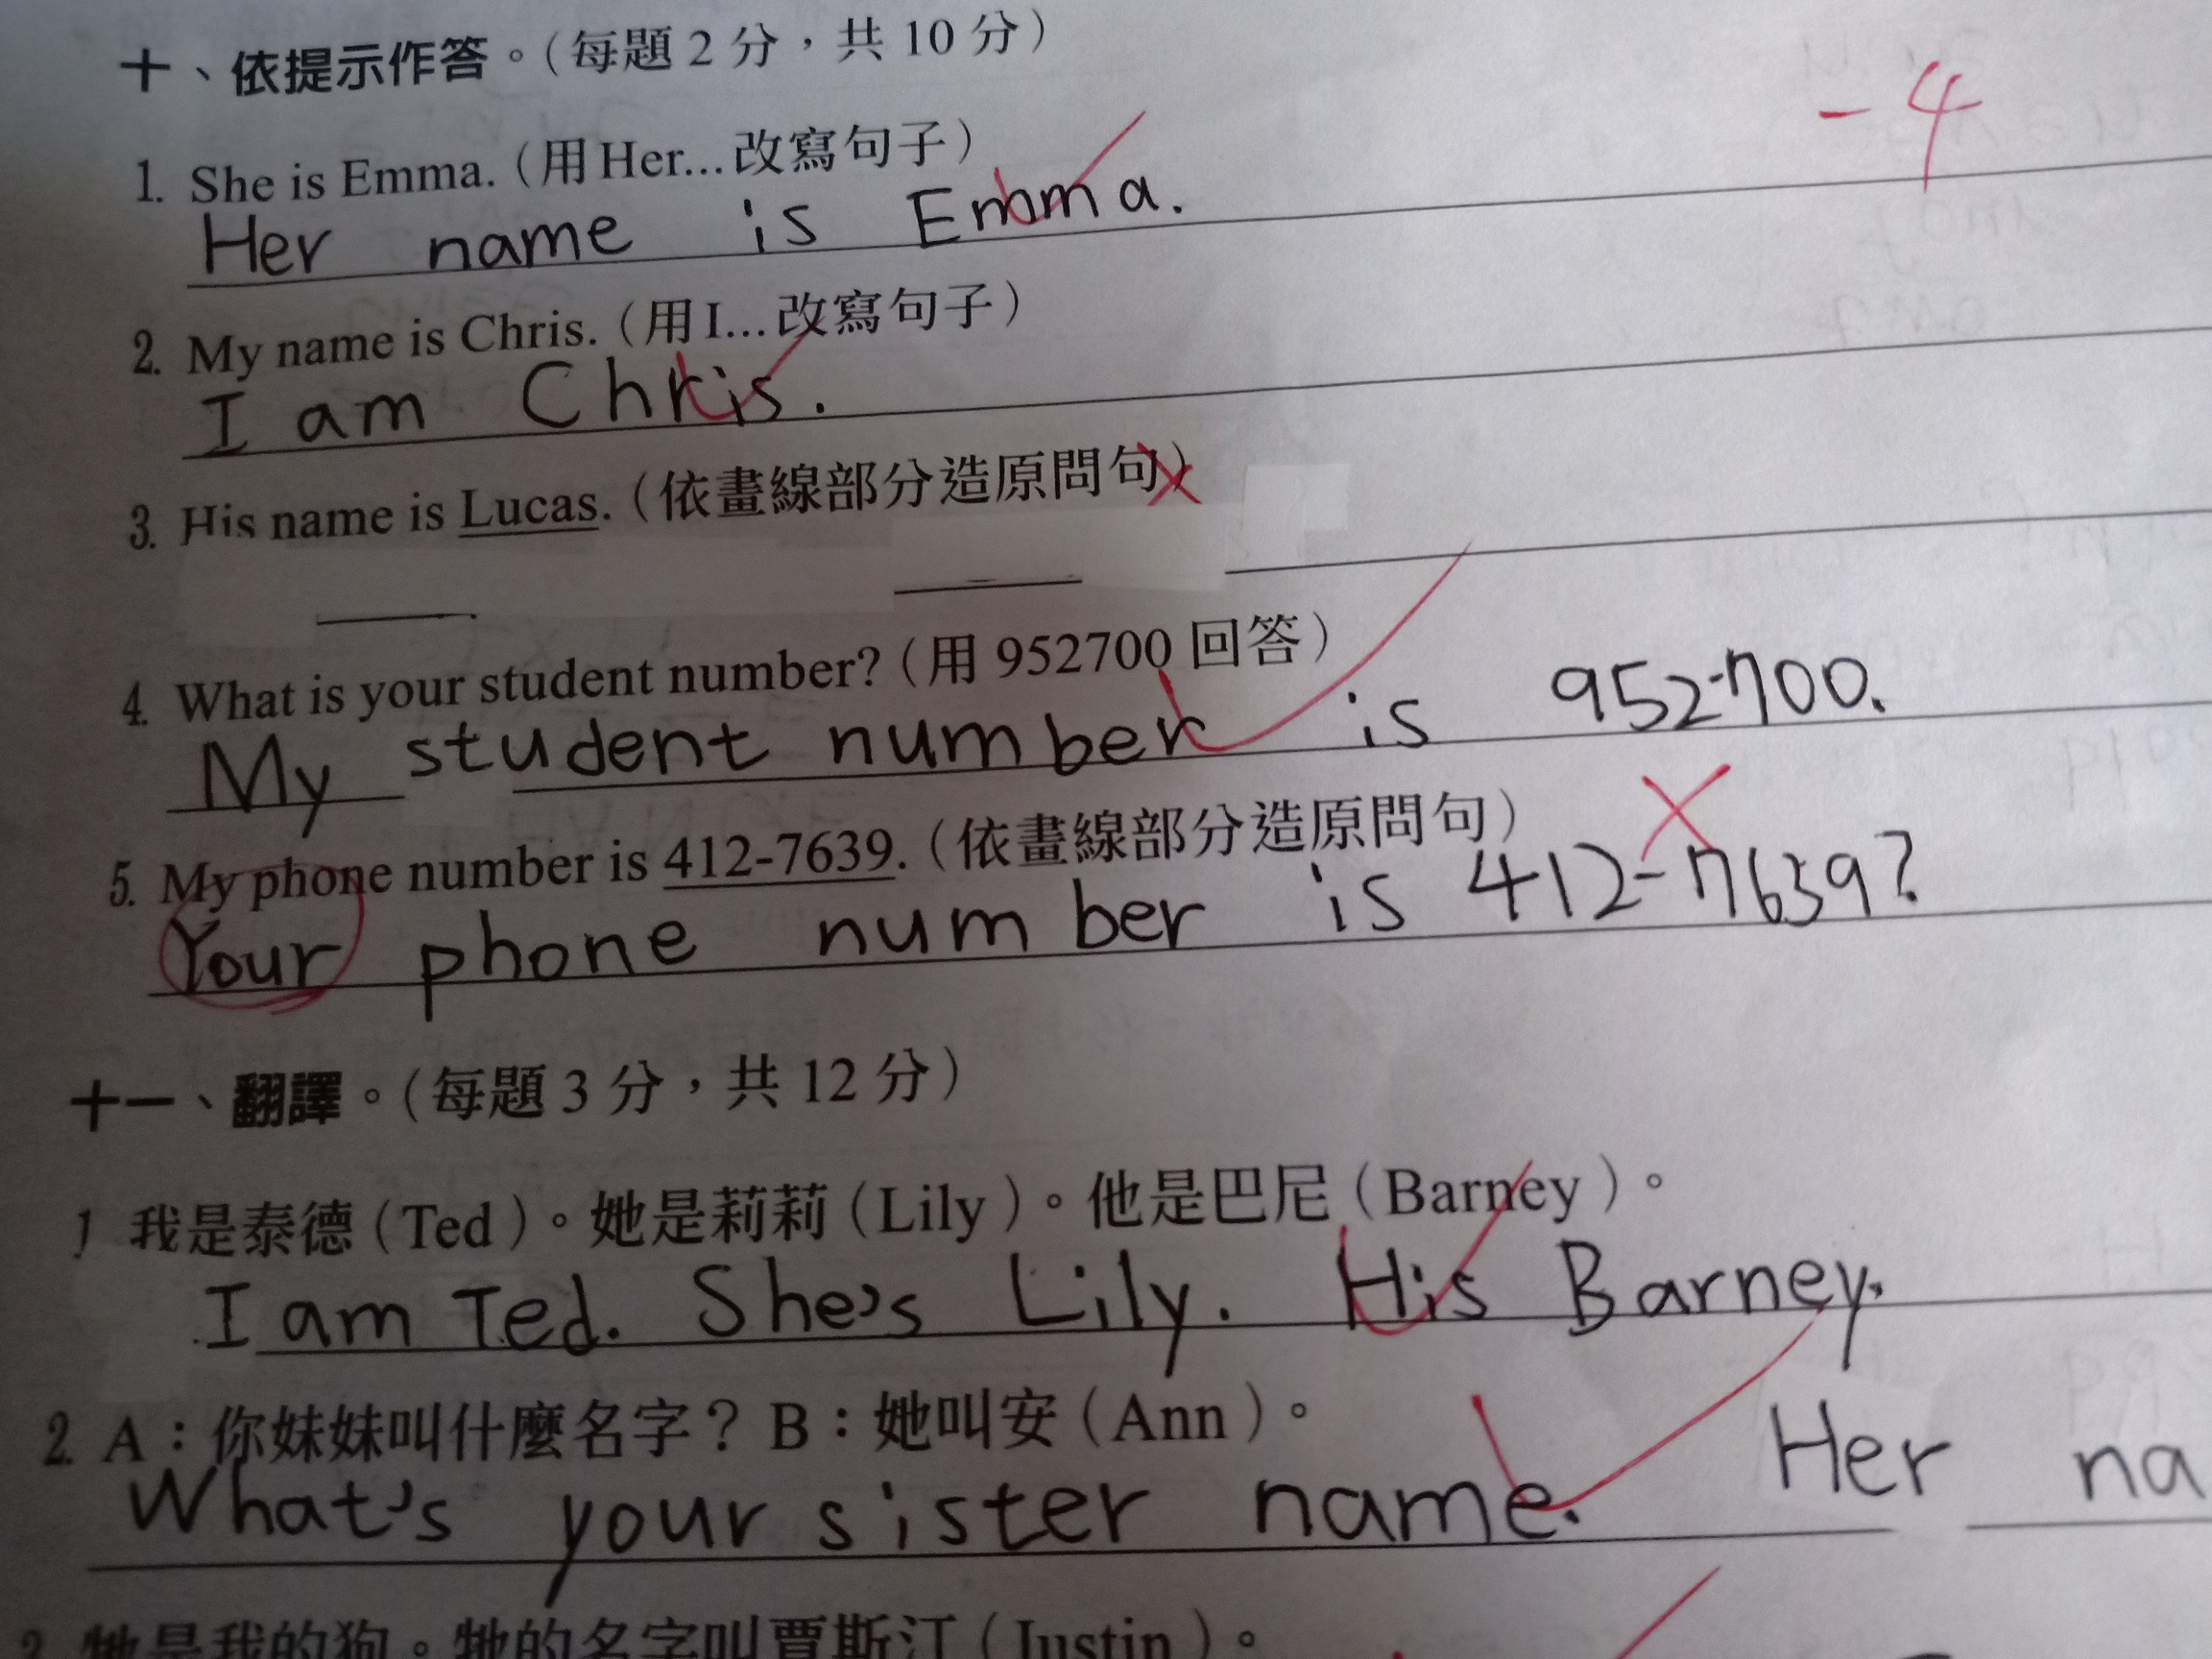 十、依提示作答。(每題 2 分,共 10 分)
-4
1. She is Emma. (用 Her... 改寫句子)
Her name is Emma.
2. My name is Chris. (用 I... 改寫句子)
I am Chris.
3. His name is Lucas. (依畫線部分造原問句)
4. What is your student number? (用 952700 回答)
My student number is 952-700.
5. My phone number is 412-7639. (依畫線部分造原問句)
Your phone number is 412-7639?
十一、翻譯。(每題 3 分,共 12 分)
1 我是泰德 (Ted)。她是莉莉 (Lily)。他是巴尼 (Barney)。
I am Ted. She's Lily. His Barney.
2. A:你妹妹叫什麼名字? B:她叫安 (Ann)。
What's your sister name. Her na
3 牠是我的狗。牠的名字叫賈斯汀 (Justin)。